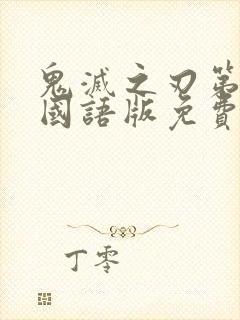 鬼滅之刃第
國語版免費
丁零